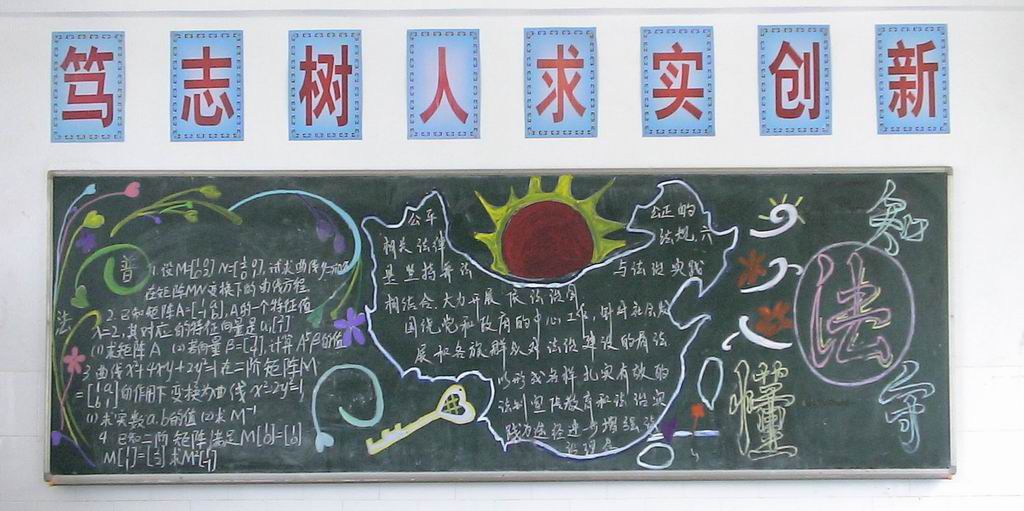 笃志树人求实创新
普
法
1.设M=[1 0 0 2] N=[½ 0 0 1],试求曲线y=
在矩阵MN变换下的曲线方程
2.已知矩阵A= A的一个特征值
λ=2,其对应的特征向量是α₁=[2 1]
(1)求矩阵A (2)若向量β=[7 4],计算A⁵β的值
3.曲线x²+4xy+2y²=1在二阶矩阵M
=[1 a b 1]的作用下变换为曲线x²-2y²=1,
(1)求实数a.b的值 (2)求M⁻¹
4.已知二阶矩阵满足M[1 0]=[1 0]
M[1 1]= 求M²[1 -1]
公平 公正的
相关法律 法规,六
是坚持普法 与法治实践
相结合.大力开展依法治国
围绕党和政府的中心工作,针对社会发
展和各族群众对法治建设的
以形式多样 扎实有效的
法制宣传教育和法治实
践为途径进一步增强
治理念
知
法
懂
守